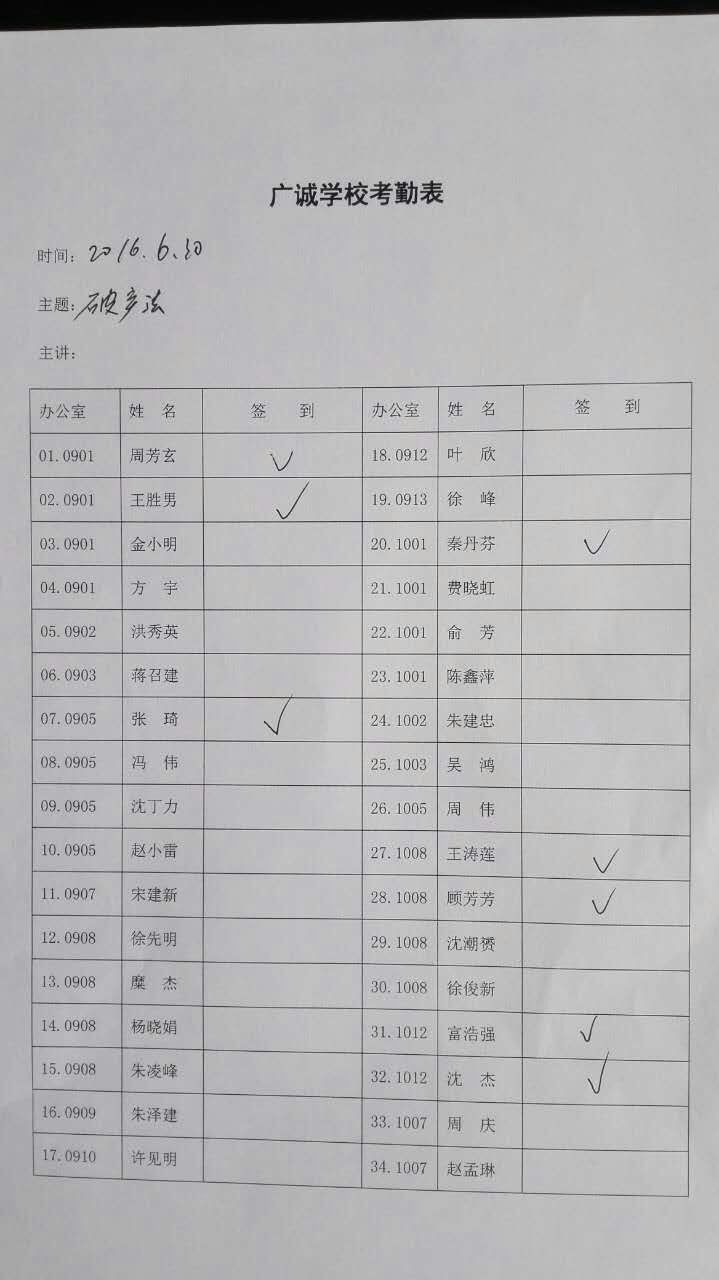 广诚学校考勤表
时间：2016.6.30
主题：破产法
主讲：
办公室 姓 名 签 到 办公室 姓 名 签 到
01.0901 周芳玄 ✓ 18.0912 叶 欣
02.0901 王胜男 ✓ 19.0913 徐 峰
03.0901 金小明 20.1001 秦丹芬 ✓
04.0901 方 宇 21.1001 费晓虹
05.0902 洪秀英 22.1001 俞 芳
06.0903 蒋召建 23.1001 陈鑫萍
07.0905 张 琦 ✓ 24.1002 朱建忠
08.0905 冯 伟 25.1003 吴 鸿
09.0905 沈丁力 26.1005 周 伟
10.0905 赵小雷 27.1008 王涛莲 ✓
11.0907 宋建新 28.1008 顾芳芳 ✓
12.0908 徐先明 29.1008 沈潮赟
13.0908 糜 杰 30.1008 徐俊新
14.0908 杨晓娟 31.1012 富浩强 ✓
15.0908 朱凌峰 32.1012 沈 杰 ✓
16.0909 朱泽建 33.1007 周 庆
17.0910 许见明 34.1007 赵孟琳